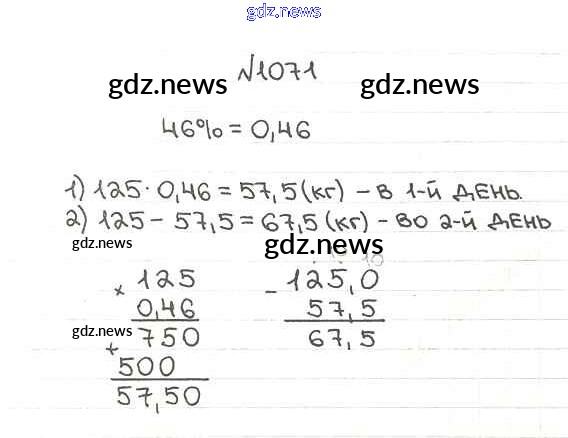 gdz.news
№1071
gdz.news gdz.news
46% = 0,46
1) 125 · 0,46 = 57,5 (кг) – в 1-й день.
2) 125 – 57,5 = 67,5 (кг) – во 2-й день
gdz.news gdz.news
10 10
× 125 – 125,0
0,46 57,5
gdz.news 750 67,5
+ 500
57,50